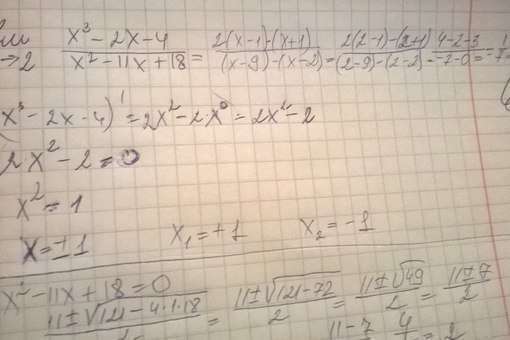 lim x³ - 2x - 4 / x² - 11x + 18 = 2(x-1)-(x+1) / (x-9)-(x-2) = 2(2-1)-(2+1) / (2-9)-(2-2) = 4-2-3 / -7-0 = 1 / -7
→2
x³ - 2x - 4)' = 2x² - 2·x⁰ = 2x² - 2
2x² - 2 = 0
x² = 1
x = ±1 x₁ = +1 x₂ = -1
x² - 11x + 18 = 0
11 ± √121 - 4·1·18 = 11 ± √121 - 72 / 2 = 11 ± √49 / 2 = 11 ± 7 / 2
11 - 7 4 = 2